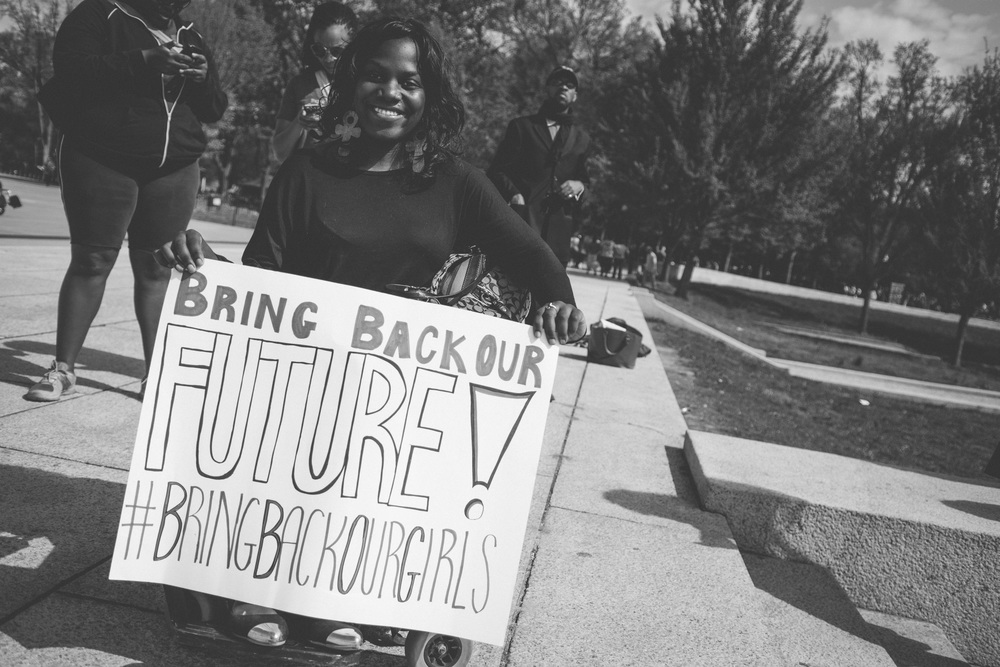 BRING BACK OUR
FUTURE!
#BRINGBACKOURGIRLS